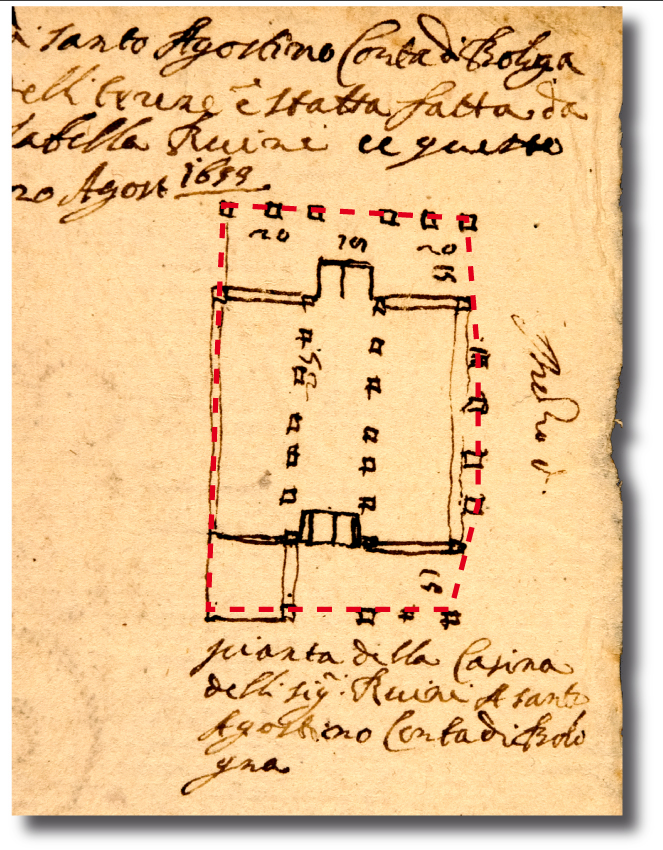 santo Agostino Conta di Bolg.a
delli terene è statta fatta da
Isabella Ruini ee questo
Agost 1699
20 15 20
15
50
15
pianta della Casina
delli sig.i Ruini A santo
Agostino Conta di Bolo
gna